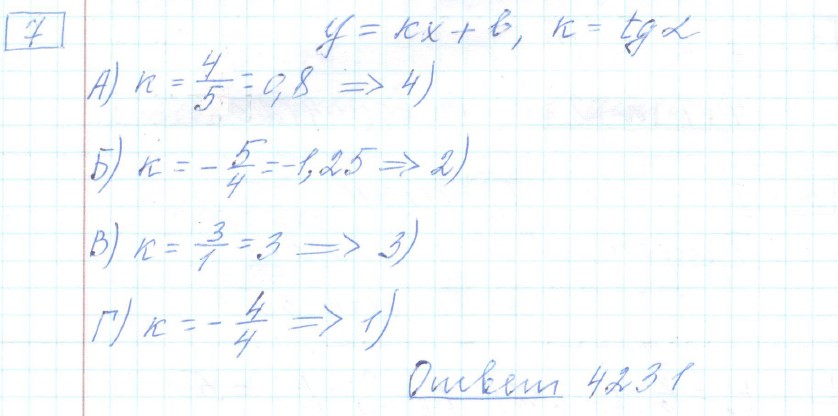 7
y = kx + b, k = tg α
А) k = 4/5 = 0,8 => 4)
Б) k = -5/4 = -1,25 => 2)
В) k = 3/1 = 3 => 3)
Г) k = -4/4 => 1)
Ответ 4231